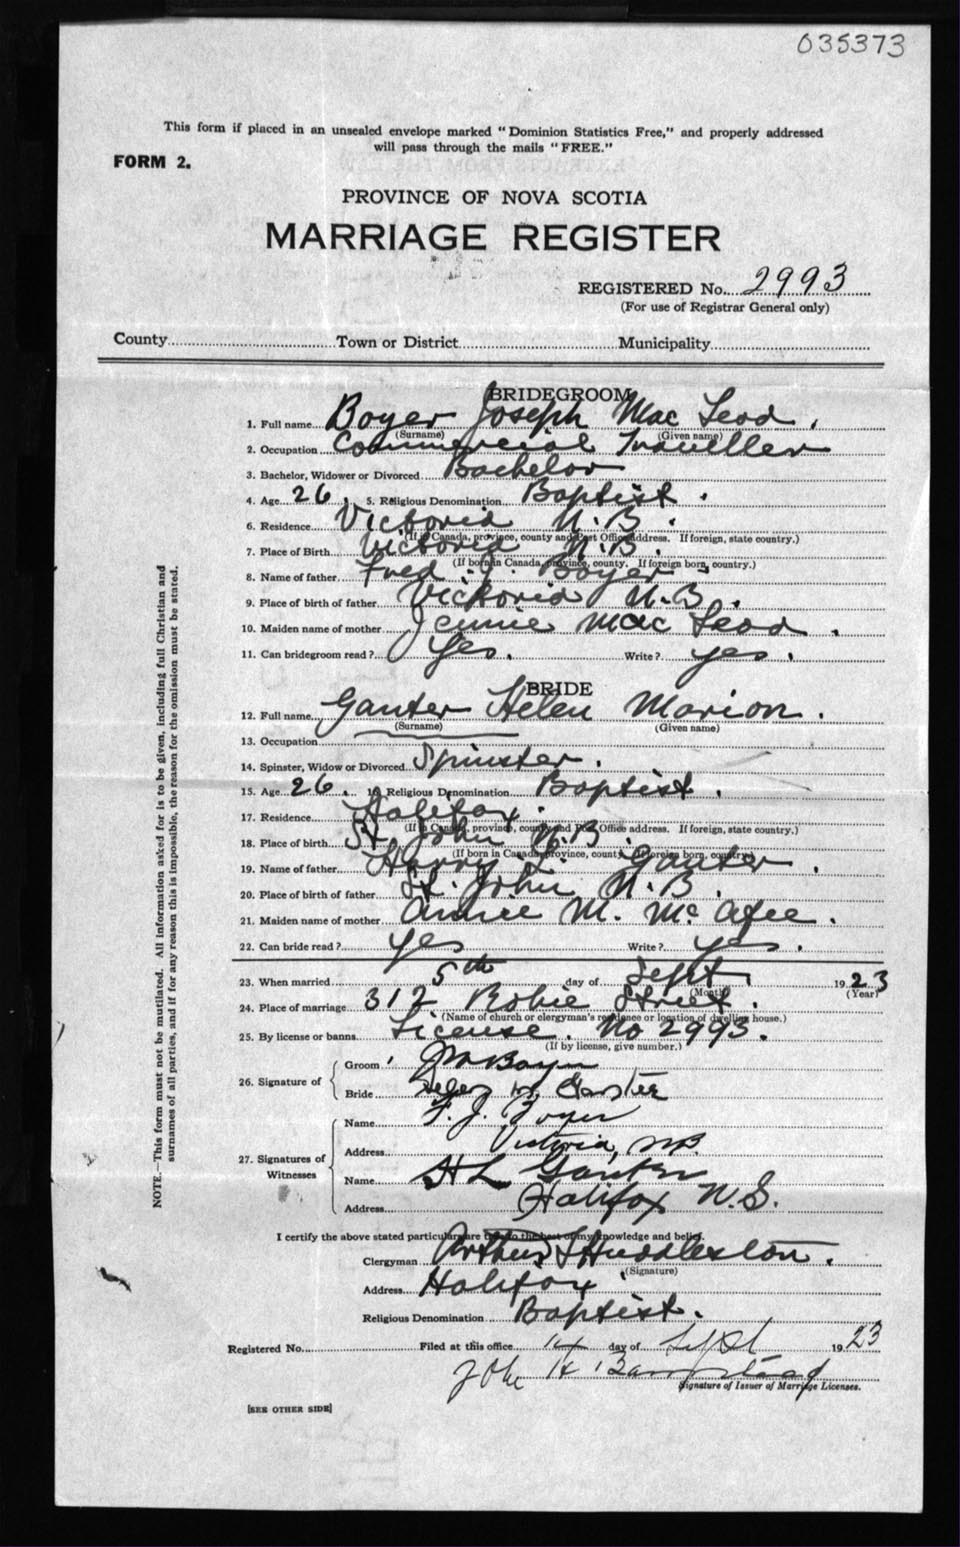 035373
This form if placed in an unsealed envelope marked "Dominion Statistics Free," and properly addressed
will pass through the mails "FREE."
FORM 2.
PROVINCE OF NOVA SCOTIA
MARRIAGE REGISTER
REGISTERED No. 2993
(For use of Registrar General only)
County Town or District Municipality
BRIDEGROOM
1. Full name Boyer Joseph Mac Leod.
(Surname) (Given name)
2. Occupation Commercial Traveller
3. Bachelor, Widower or Divorced Bachelor
4. Age 26. 5. Religious Denomination Baptist.
6. Residence Victoria N.B.
(If in Canada, province, county and Post Office address. If foreign, state country.)
7. Place of Birth Victoria N.B.
(If born in Canada, province, county. If foreign born, country.)
8. Name of father Fred. J. Boyer.
9. Place of birth of father Victoria N.B.
10. Maiden name of mother Jennie Mac Leod.
11. Can bridegroom read? Yes. Write? yes.
BRIDE
12. Full name Ganter Helen Marion.
(Surname) (Given name)
13. Occupation
14. Spinster, Widow or Divorced Spinster.
15. Age 26. 16 Religious Denomination Baptist.
17. Residence Halifax.
(If in Canada, province, county and Post Office address. If foreign, state country.)
18. Place of birth St. John N.B.
(If born in Canada, province, county. If foreign born, country.)
19. Name of father Harry L. Ganter.
20. Place of birth of father St. John N.B.
21. Maiden name of mother Annie M. McAfee.
22. Can bride read? yes Write? yes.
23. When married 5th day of Sept, 1923
(Month) (Year)
24. Place of marriage 312 Robie Street.
(Name of church or clergyman's residence or location of dwelling house.)
25. By license or banns License. No 2993.
(If by license, give number.)
26. Signature of
Groom Boyer
Bride Helen M. Ganter
27. Signatures of Witnesses
Name F. J. Boyer
Address Victoria, NB.
Name H L Ganter
Address Halifax N.S.
I certify the above stated particulars are true to the best of my knowledge and belief.
Clergyman Arthur S Huddleston.
(Signature)
Address Halifax.
Religious Denomination Baptist.
Registered No. Filed at this office 14 day of Sept 1923
John H Barnstead
Signature of Issuer of Marriage Licenses.
[SEE OTHER SIDE]
NOTE.—This form must not be mutilated. All information asked for is to be given, including full Christian and
surnames of all parties, and if for any reason this is impossible, the reason for the omission must be stated.